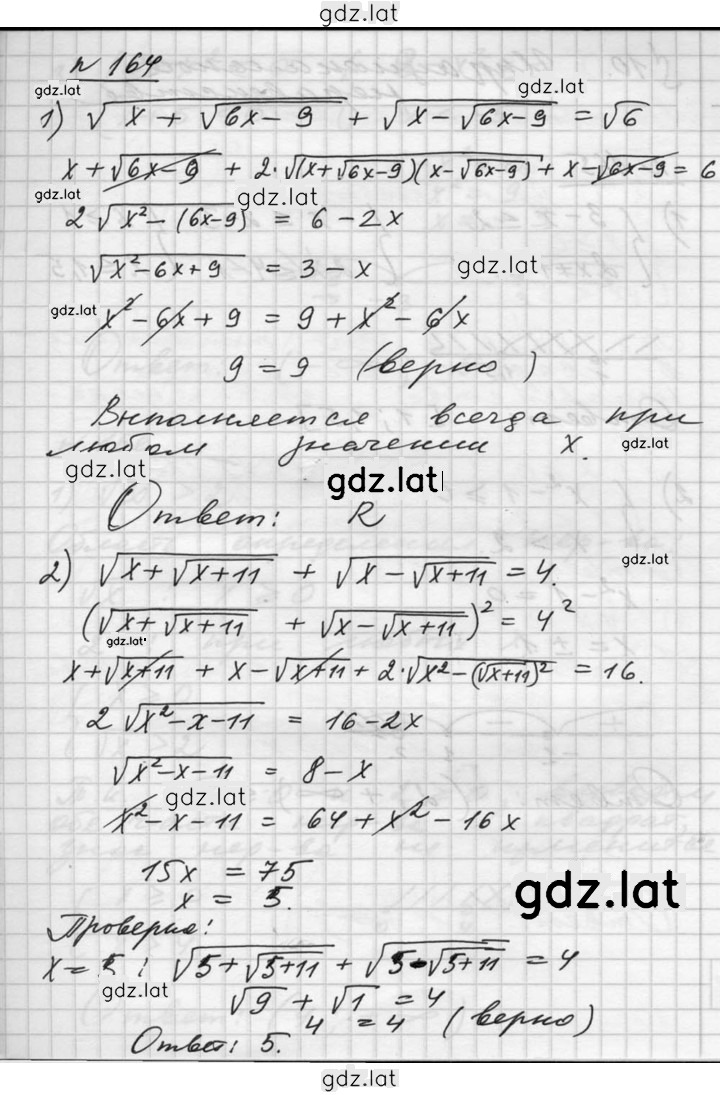 gdz.lat
№ 164
gdz.lat
gdz.lat
1) √(x + √(6x - 9)) + √(x - √(6x-9)) = √6
x + √(6x-9) + 2·√((x+√(6x-9))(x-√(6x-9))) + x - √(6x-9) = 6
gdz.lat
2√(x² - (6x-9)) = 6 - 2x
√(x² - 6x + 9) = 3 - x
gdz.lat
gdz.lat
x² - 6x + 9 = 9 + x² - 6x
9 = 9 (верно)
Выполняется всегда при
любом значении x.
gdz.lat
gdz.lat
gdz.lat
Ответ: R
2) √(x + √(x+11)) + √(x - √(x+11)) = 4.
gdz.lat
(√(x + √(x+11)) + √(x - √(x+11)))² = 4²
gdz.lat
x + √(x+11) + x - √(x+11) + 2·√(x² - (√(x+11))²) = 16.
2√(x² - x - 11) = 16 - 2x
√(x² - x - 11) = 8 - x
gdz.lat
x² - x - 11 = 64 + x² - 16x
15x = 75
x = 5.
gdz.lat
Проверка:
x = 5: √(5 + √(5+11)) + √(5 - √(5+11)) = 4
gdz.lat
√9 + √1 = 4
4 = 4 (верно)
Ответ: 5.
gdz.lat